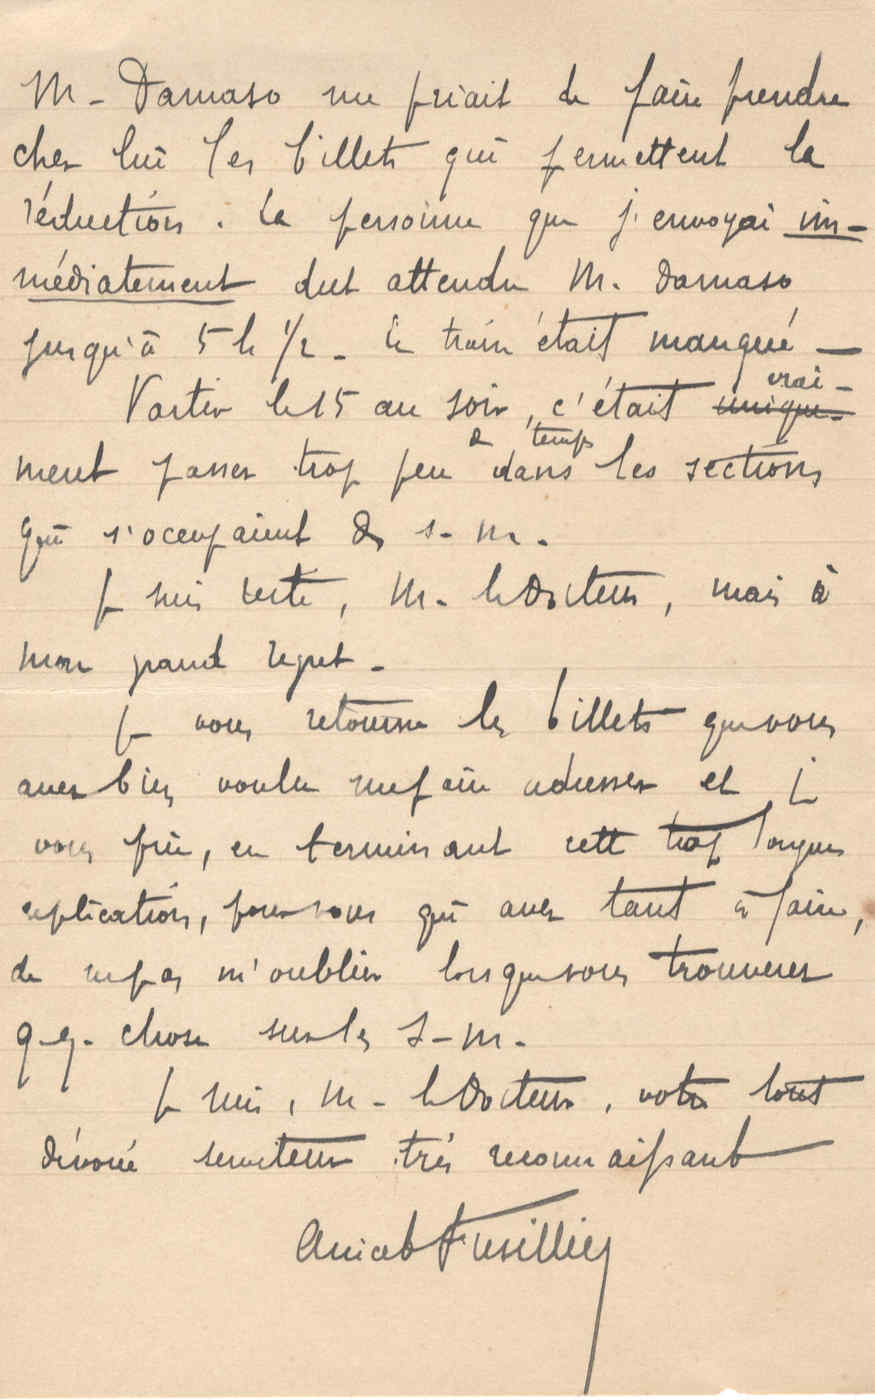 M. Damaso me priait de faire prendre
chez lui les billets qui permettent la
réduction. La personne que j'envoyai im-
médiatement dut attendre M. Damaso
jusqu'à 5 h 1/2. Le train était manqué —
Partir le 15 au soir, c'était uniqué- vrai-
ment passer trop peu de temps dans les sections
qui s'occupaient de s-m.
Je suis resté, M. le Docteur, mais à
mon grand regret.
Je vous retourne les billets que vous
avez bien voulu me faire adresser et je
vous prie, en terminant cette trop longue
explication, pour vous qui avez tant à faire,
de ne pas m'oublier lorsque vous trouverez
q.q. chose sur les s-m.
Je suis, M. le Docteur, votre tout
dévoué serviteur très reconnaissant
Anicet Fusillier